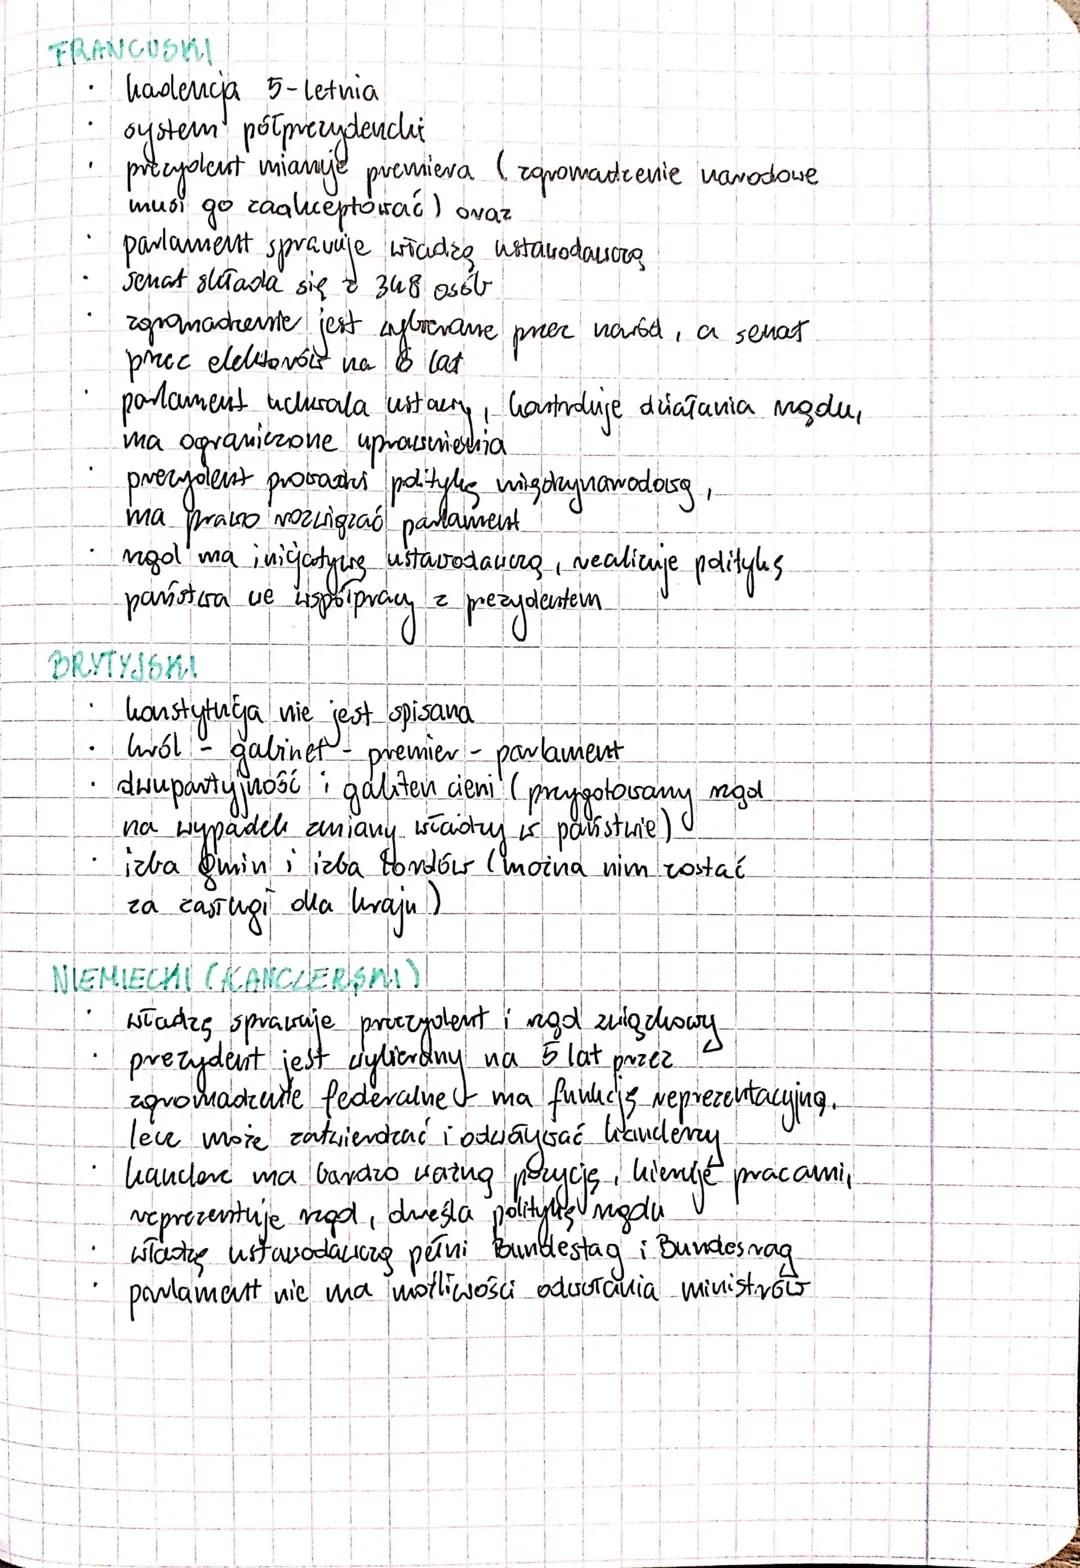 FRANCUSKI
· kadencja 5-letnia
· system półprezydencki
· prezydent mianuje premiera (zgromadzenie narodowe
musi go zaakceptować) oraz
· parlament sprawuje władzę ustawodawczą
· senat składa się z 348 osób
· zgromadzenie jest wybierane przez naród, a senat
przez elektorów na 6 lat
· parlament uchwala ustawy, kontroluje działania rządu,
ma ograniczone uprawnienia
· prezydent prowadzi politykę międzynarodową,
ma prawo rozwiązać parlament
· rząd ma inicjatywę ustawodawczą, realizuje politykę
państwa we współpracy z prezydentem
BRYTYJSKI
· konstytucja nie jest spisana
· król - gabinet - premier - parlament
· dwupartyjność i gabiten cieni (przygotowany rząd
na wypadek zmiany władzy w państwie)
· izba gmin i izba lordów (można nim zostać
za zasługi dla kraju)
NIEMIECKI (KANCLERSKI)
· władzę sprawuje prezydent i rząd związkowy
· prezydent jest wybierany na 5 lat przez
zgromadzenie federalne ma funkcję reprezentacyjną,
lecz może zatwierdzać i odwoływać kanclerzy
· kanclerz ma bardzo ważną pozycję, kieruje pracami,
reprezentuje rząd, określa politykę rządu
· władzę ustawodawczą pełni Bundestag i Bundesrag
· parlament nie ma możliwości odwołania ministrów